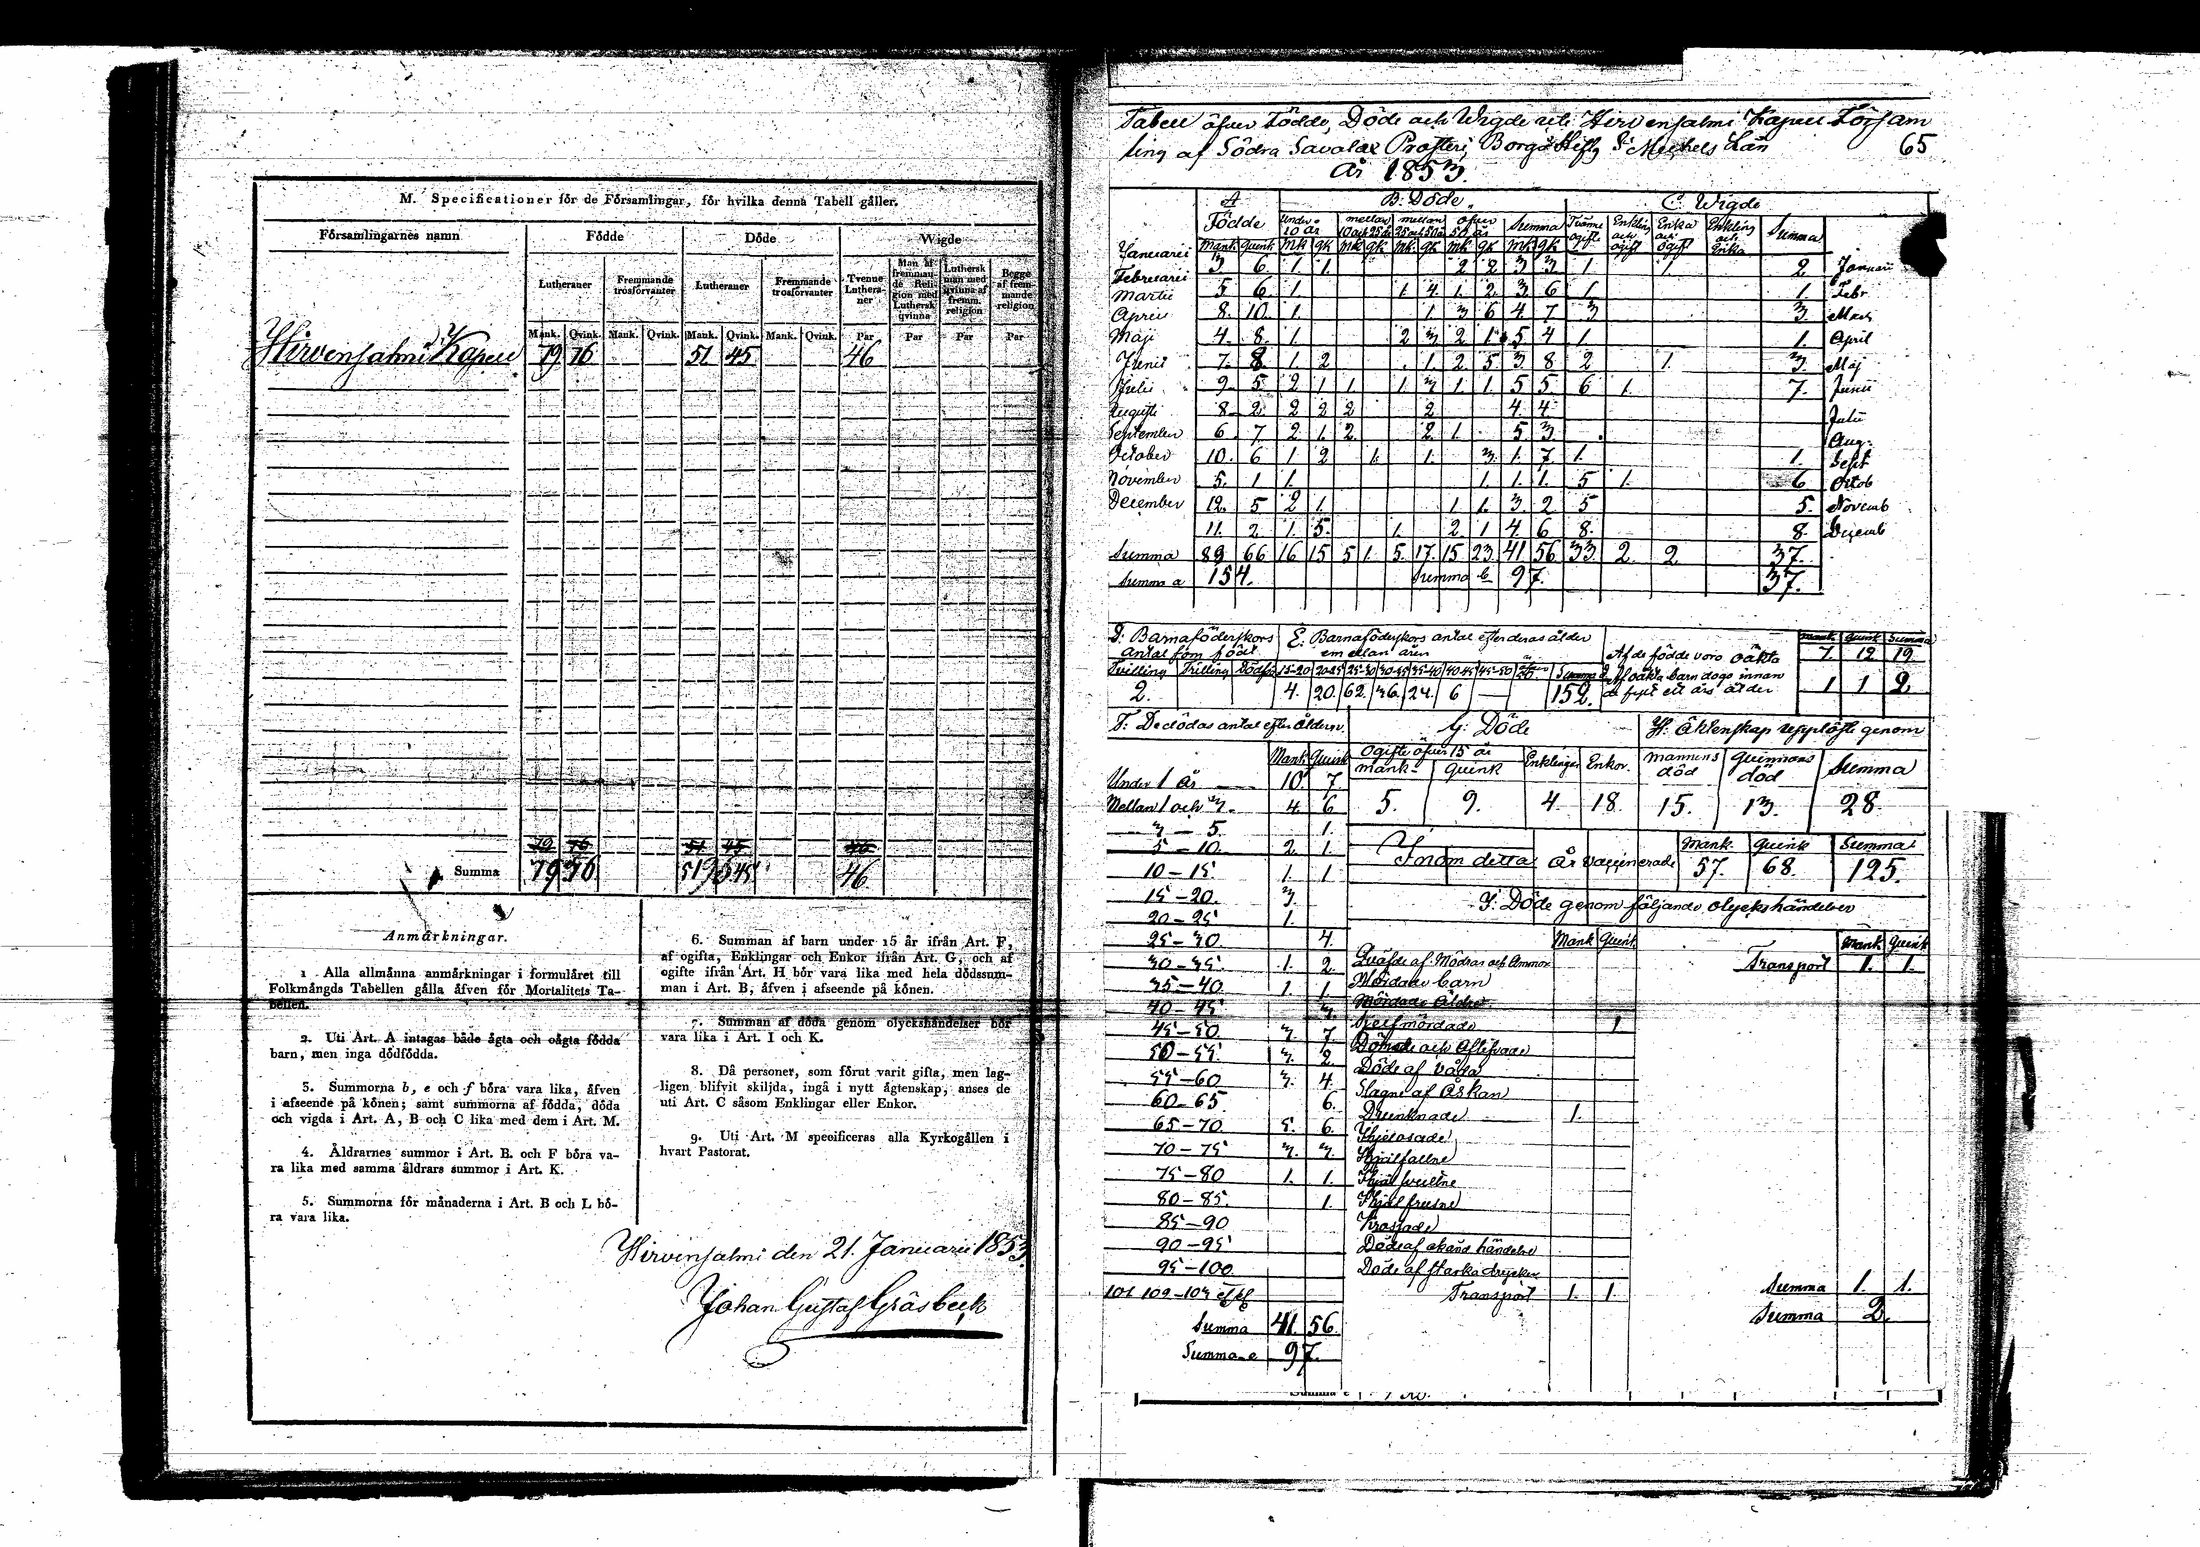 M. Specificationer för de Församlingar, för hvilka denna Tabell gäller.
Församlingarnes namn Födde Döde Wigde
Lutheraner Fremmande trosförvanter Lutheraner Fremmande trosförvanter Tvenne Lutheraner Man af fremmande Religion med Luthersk qvinna Luthersk man med qvinna af fremm. religion Begge af fremmande religion
Mank. Qvink. Mank. Qvink. Mank. Qvink. Mank. Qvink. Par Par Par Par
Hirvensalmi Kapell 79 76 51 45 46
79 76 51 45 46
Summa 79 76 51 45 46
Anmärkningar.
1 Alla allmänna anmärkningar i formuläret till
Folkmängds Tabellen gälla äfven för Mortalitets Ta-
bellen.
2. Uti Art. A intagas både ägta och oägta födda
barn, men inga dödfödda.
3. Summorna b, e och f böra vara lika, äfven
i afseende på könen; samt summorna af födda, döda
och vigda i Art. A, B och C lika med dem i Art. M.
4. Åldrarnes summor i Art. B. och F böra va-
ra lika med samma åldrars summor i Art. K.
5. Summorna för månaderna i Art. B och L bö-
ra vara lika.
6. Summan af barn under 15 år ifrån Art. F,
af ogifta, Enklingar och Enkor ifrån Art. G, och af
ogifte ifrån Art. H bör vara lika med hela dödssum-
man i Art. B, äfven i afseende på könen.
7. Summan af döda genom olyckshändelser bör
vara lika i Art. I och K.
8. Då personer, som förut varit gifta, men lag-
ligen blifvit skiljda, ingå i nytt ägtenskap, anses de
uti Art. C såsom Enklingar eller Enkor.
9. Uti Art. M specificeras alla Kyrkogällen i
hvart Pastorat.
Hirvensalmi den 21. Januarii 1853.
Johan Gustaf Gråsbeck
Tabell öfver Födde, Döde och Wigde uti Hirvensalmi Kapell Församling
af Södra Savolax Prosteri, Borgå Stift, St Michels Län 65
År 1853.
A Födde B: Döde. C. Wigde
Under 10 år mellan 10 och 25 år mellan 25 och 50 år öfver 50 år Summa Tvänne ogifte Enkling och ogift Enka och ogift Enkling och Enka Summa
Mank. Quink Mk qk Mk qk Mk qk Mk qk Mk qk
Januarii 3 6 1 1 2 2 3 3 1 1 2 Januari
Februarii 5 6 1 1 4 1 2 3 6 1 1 Febr
Martii 8 10 1 1 3 6 4 7 3 3 Mars
Aprill 4 8 1 2 3 2 1 5 4 1 1 April
Maji 7 8 1 2 1 2 5 3 8 2 1 3 Maj
Junii 9 5 2 1 1 1 3 1 1 5 5 6 1 7 Junii
Julii 8 2 2 2 2 2 4 4 Julii
Augusti 6 7 2 1 2 2 1 5 3 Aug.
September 10 6 1 2 1 1 3 1 7 1 1 Sept
October 5 1 1 1 1 1 5 1 6 Octob
November 12 5 2 1 1 1 3 2 5 5 Novemb
December 11 2 1 5 1 2 1 4 6 8 8 Decemb
Summa 89 66 16 15 5 1 5 17 15 23 41 56 33 2 2 37.
Summa a 154. Summa b 97. 37.
D: Barnaföderskors antal som födt
Tvilling Trilling Dödf.
2.
E: Barnaföderskors antal efter deras ålder emellan åren
15-20 20-25 25-30 30-35 35-40 40-45 45-50 Summa
4. 20. 62. 36. 24. 6 — 152.
Mank. Quink Summa
Af de födde voro oäkta 7. 12 19
Af oäkta barn dogo innan de fyllt ett års ålder 1 1 2.
F: De dödas antal efter åldern
Mank. Quink
Under 1 År 10. 7
Mellan 1 och 3 4. 6
3 — 5. 1.
5 — 10 2 1.
10 — 15 1. 1
15 — 20. 3.
20 — 25 1.
25 — 30 4.
30 — 35 1. 2
35 — 40 1. 1.
40 — 45 3.
45 — 50 3. 7.
50 — 55 3. 2
55 — 60 3. 4.
60 — 65. 6.
65 — 70 5. 6.
70 — 75 3. 3.
75 — 80 1. 1.
80 — 85. 1.
85 — 90
90 — 95
95 — 100
Summa 41. 56.
Summa e 97.
G: Döde
Ogifte öfver 15 år Enklingar Enkor.
Mank Quink
5. 9. 4. 18.
H: Äktenskap upplöste genom
mannens död Quinnans död Summa
15. 13. 28.
Mank. Quink Summa
Inom detta År vaccinerade 57. 68. 125.
I: Döde genom följande olyckshändelser
Mank Quink
Quäfde af Mödrar och Ammor
Mördade barn
Mördade Äldre
Sjelfmördade 1
Dömde och Aflifvade
Döde af våda
Slagne af Åskan
Drunknade 1.
Ihjelosade
Ihjälfallne
Ihjälsvultne
Ihjälfrusne
Krossade
Döde af okänd händelse
Döde af starka drycker
Transport 1. 1
Mank Quink
Transport 1. 1.
Summa 1. 1.
Summa 2.
Summa e